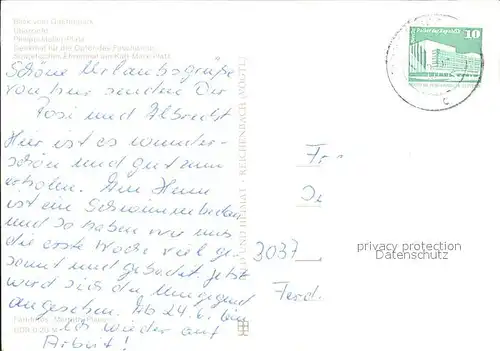 Blick vom Gartenpark
Übersicht
Platz
Denkmal für die Opfer des Faschismus
Sowjetisches Ehrenmal am Karl-Marx-Platz
Schöne Urlaubsgrüße
von hier senden Dir
Rosi und Albrecht
Hier ist es wunder-
schön und gut zum
erholen. Am Haus
ist ein Schwimmbecken
und so haben wir uns
die erste Woche viel ge-
sonnt und gebadet. Jetzt
wird sich die Umgegend
angesehen. Ab 24.6. bin
ich wieder auf
Arbeit!
BILD UND HEIMAT · REICHENBACH (VOGTL)
10
Fr
3037
Ferd.
privacy protection
Datenschutz